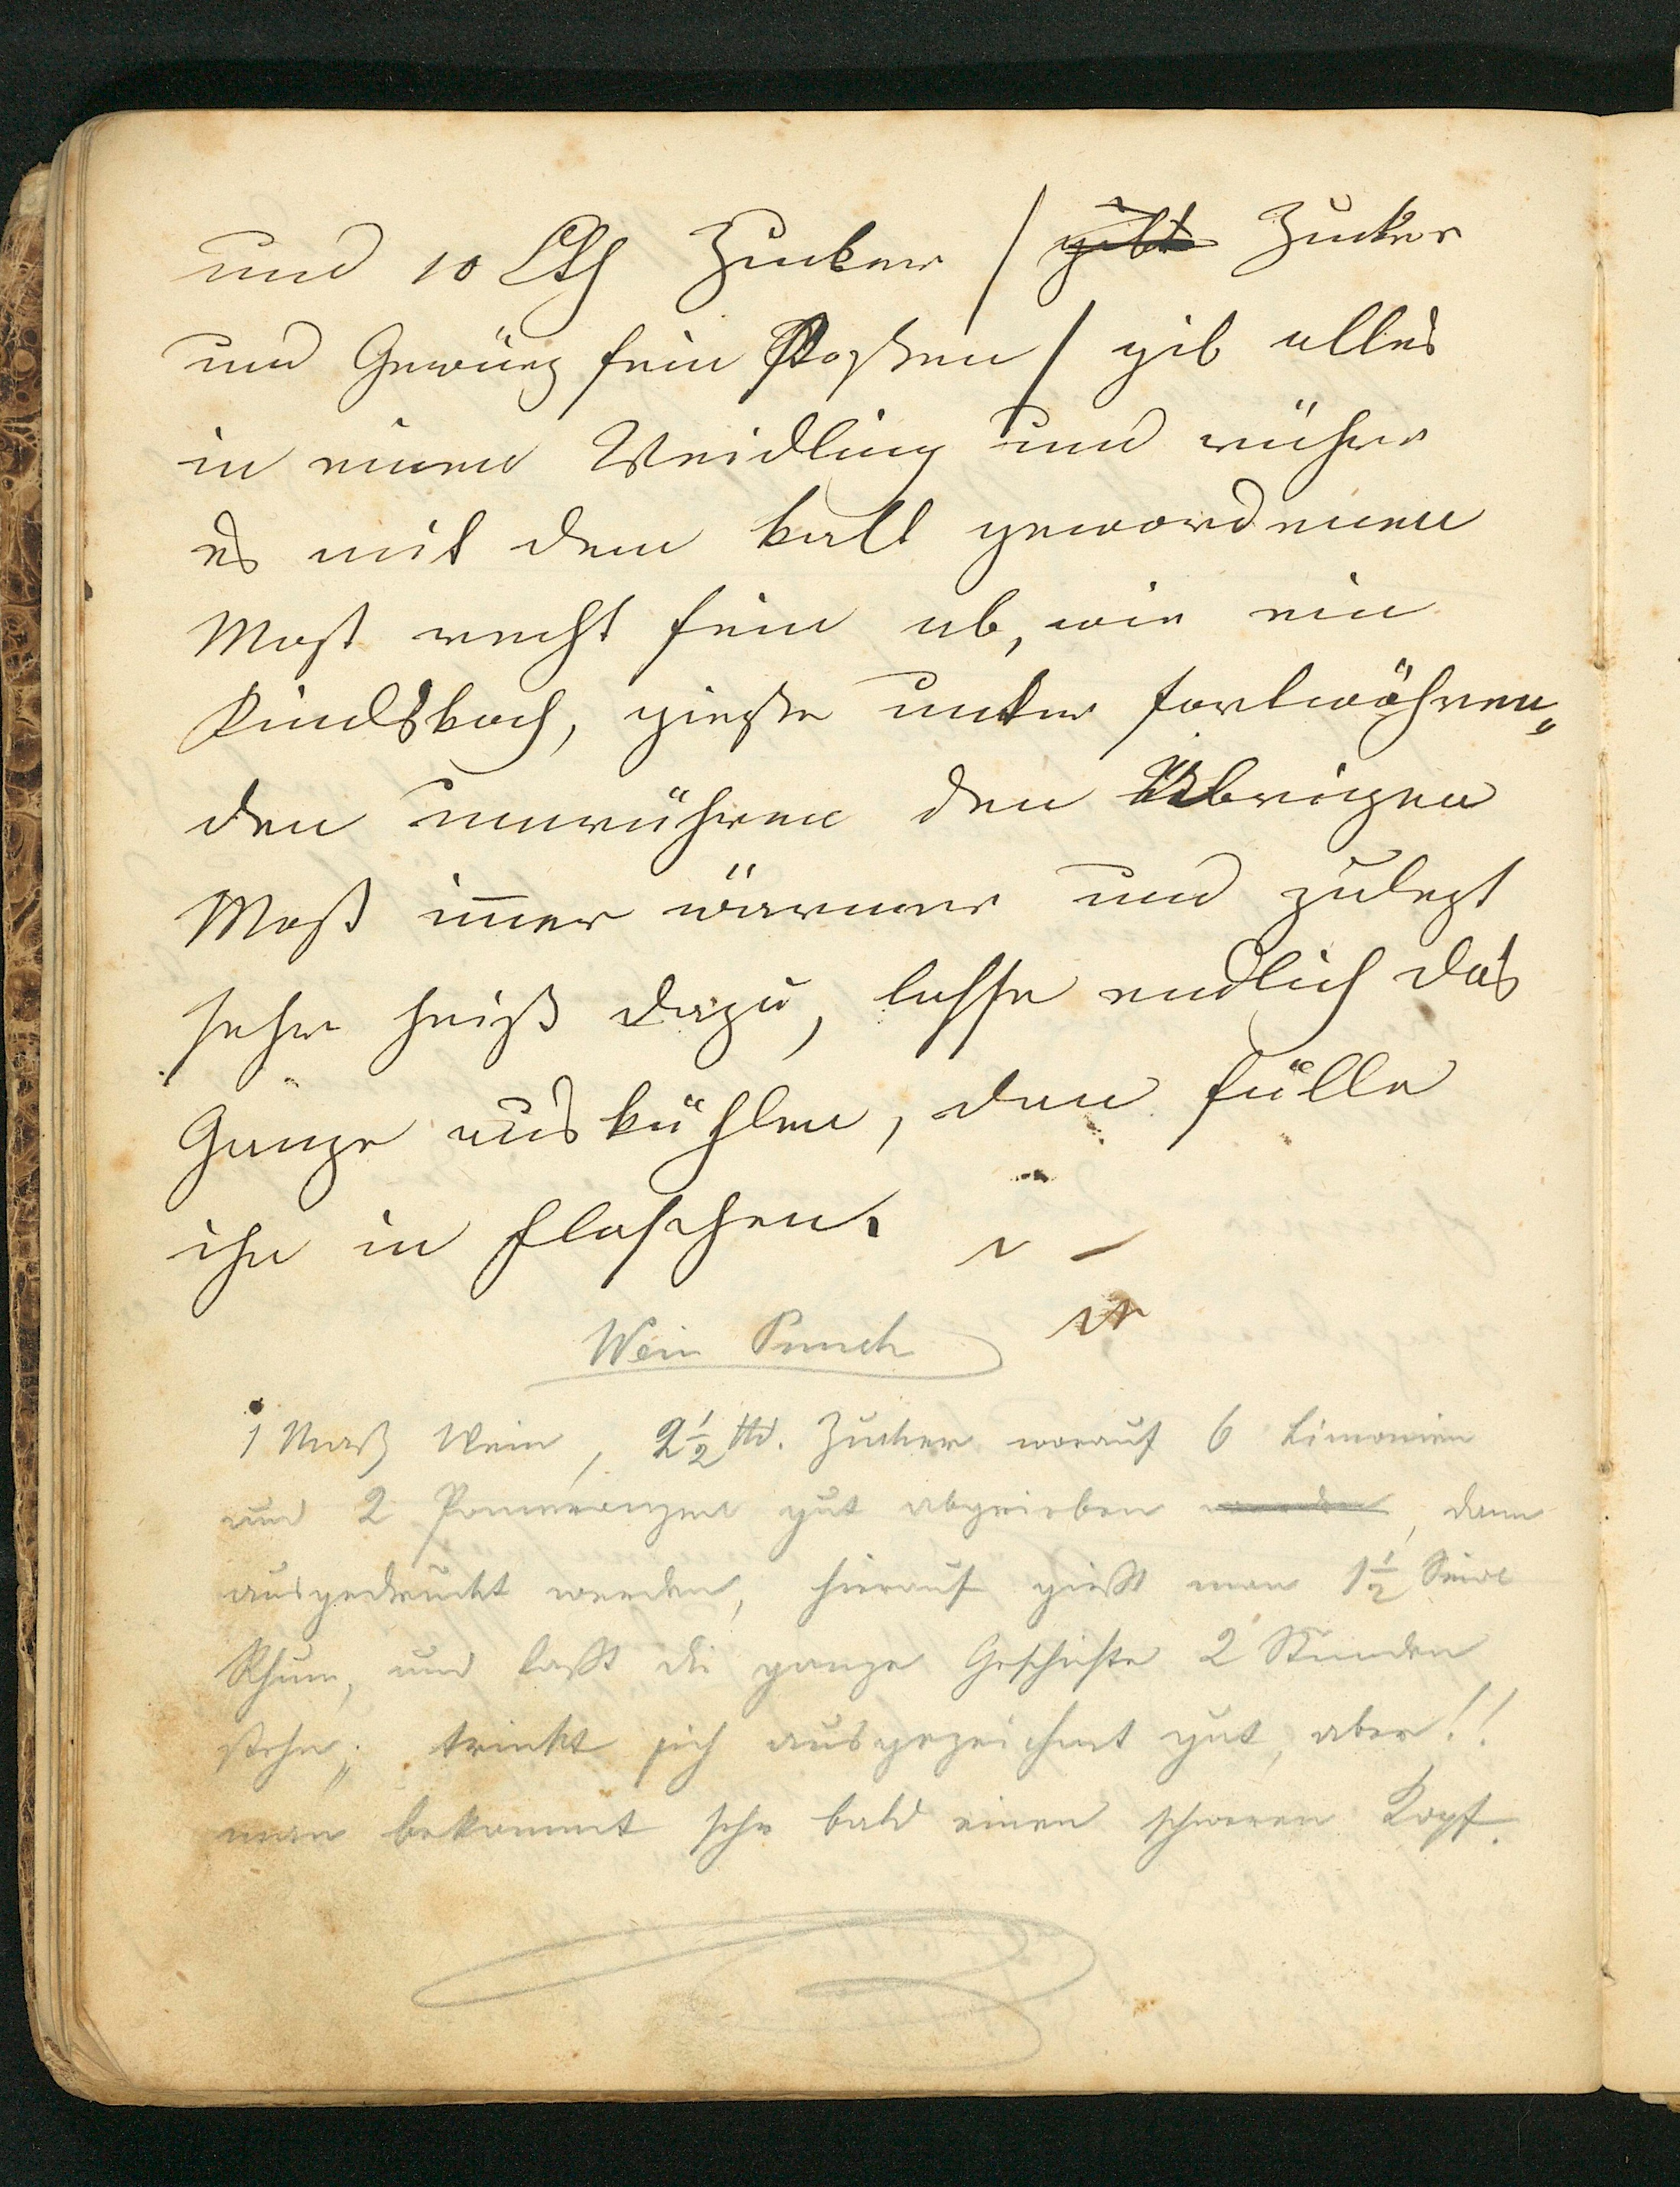 und 10 Lth Zucker / gibt Zucker
und Gewürz fein stoßen / gib alles
in einen Weidling und rühre
es mit dem kalt gewordenen
Most recht fein ab, wie ein
Kindskoch, gieße unter fortwähren„
den umrühren den Übrigen
Most immer wärmer und zulezt
sehr heiß dazu, lasse endlich das
Ganze auskühlen, dan fülle
ihn in Flaschen.
Wein Punsch
1 Maß Wein, 2½ ℔. Zucker worauf 6 Limonien
und 2 Pomeranzen gut abgerieben werden, dann
ausgedruckt werden, hierauf gießt man 1½
Rhum, und laßt die ganze Geschichte 2 Stunden
stehn; trinkt sich ausgezeichnet gut, aber!!
man bekommt sehr bald einen schweren Kopf.